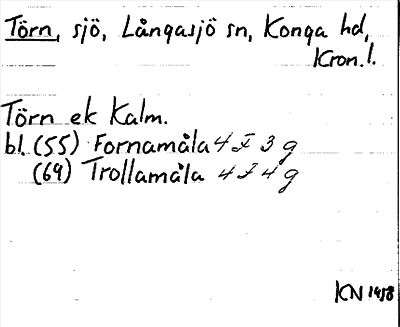 Törn, sjö, Långasjö sn, Konga hd,
Kron. l.
Törn ek Kalm.
bl. (55) Fornamåla 4 F 3 g
(69) Trollamåla 4 F 4 g
KN 1958